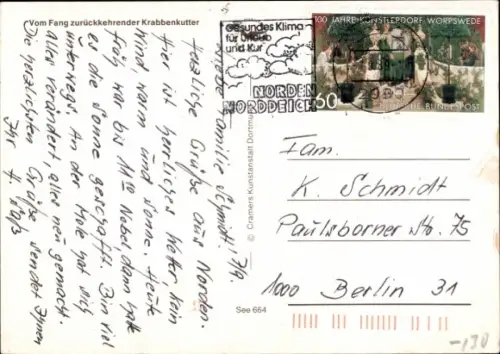 Vom Fang zurückkehrender Krabbenkutter
Liebe Familie Schmidt! 7/9.
Herzliche Grüße aus Norden.
Hier ist herrliches Wetter, kein
Wind, warm und Sonne. Heute
früh war bis 11°° Nebel, dann hatte
es die Sonne geschafft. Bin viel
unterwegs. An der Mole hat sich
alles verändert, alles neu gemacht.
Die herzlichsten Grüße sendet Ihnen
Ihr H.
© Cramers Kunstanstalt Dortmund
See 664
Gesundes Klima
für Urlaub
und Kur
NORDEN
NORDDEICH
100 JAHRE KÜNSTLERDORF WORPSWEDE
60
DEUTSCHE BUNDESPOST
Fam.
K. Schmidt
Paulsborner Str. 75
1000 Berlin 31
-130